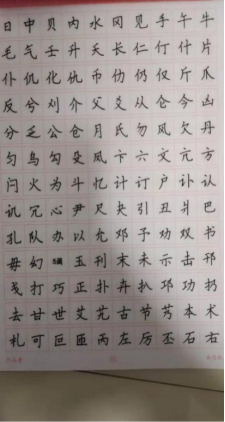 日中贝内水冈见手午牛
毛气壬升夭长仁仃什片
仆仉化仇币仂仍仅斤爪
反兮刈介父爻从仑今凶
分乏公仓月氏勿风欠丹
匀乌勾殳凤卞六文亢方
闩火为斗忆计订户讣认
讥冗心尹尺夬引丑爿巴
孔队办以允邓予劝双书
毋幻玉刊末未示击邗
戋打巧正扑卉扒邛功扔
去甘世艾艽古节艿本术
札可叵匝丙左厉丕石右